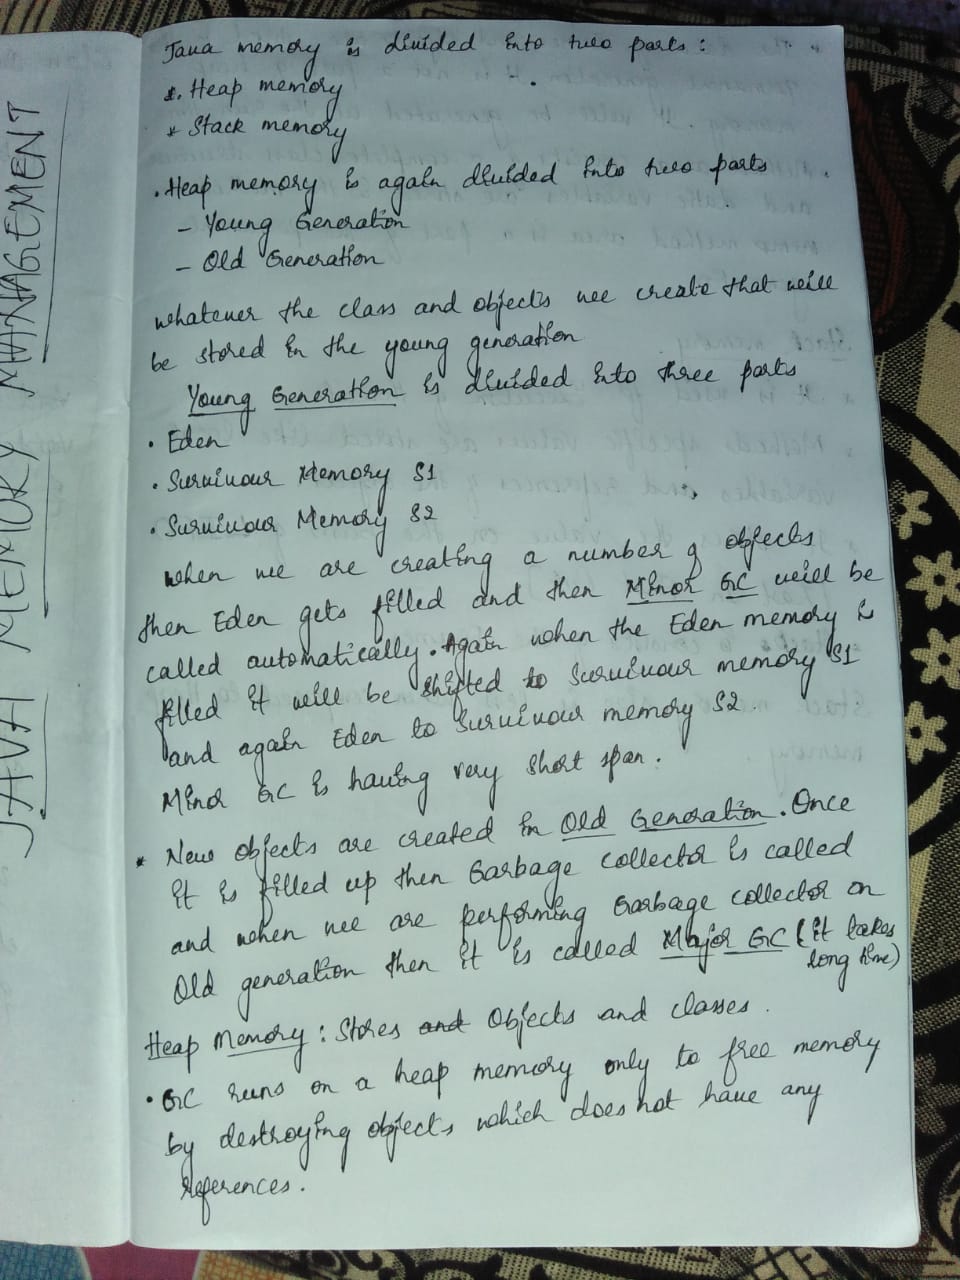 JAVA MEMORY MANAGEMENT
Java memory is divided into two parts :
*. Heap memory
* Stack memory
. Heap memory is again divided into two parts .
- Young Generation
- Old Generation
whatever the class and objects we create that will
be stored in the young generation
Young Generation is divided into three parts
. Eden
. Survivour Memory S1
. Survivour Memory S2
when we are creating a number of objects
then Eden gets filled and then Minor GC will be
called automatically. Again when the Eden memory is
filled it will be shifted to Survivour memory S1
and again Eden to Survivour memory S2.
Minor GC is having very short span.
* New objects are created in Old Generation. Once
it is filled up then Garbage collector is called
and when we are performing Garbage collector on
Old generation then it is called Major GC (it takes
long time)
Heap Memory : Stores and Objects and classes.
. GC runs on a heap memory only to free memory
by destroying objects which does not have any
references.